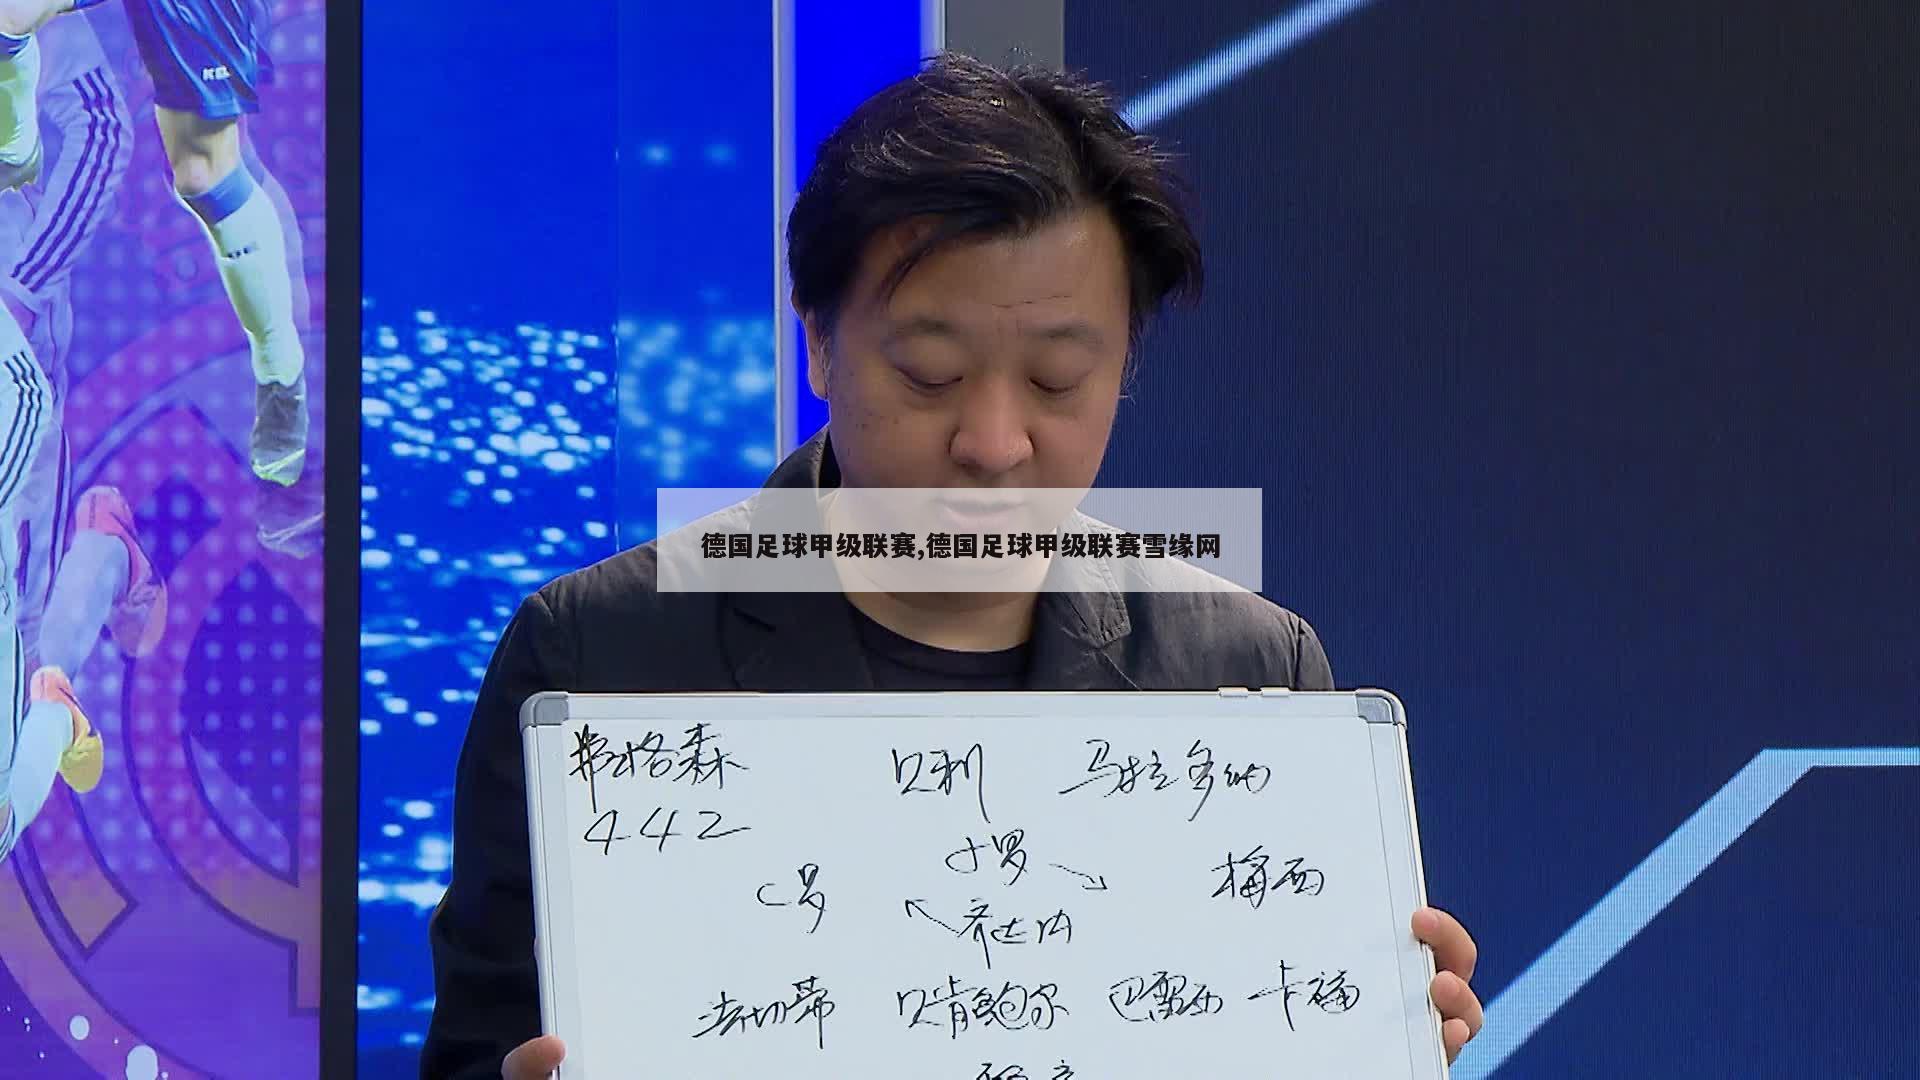 德国足球甲级联赛,德国足球甲级联赛雪缘网
弗格森 贝利 马拉多纳
442
小罗
C罗 梅西
齐达内
法切蒂 贝肯鲍尔 巴雷西 卡福